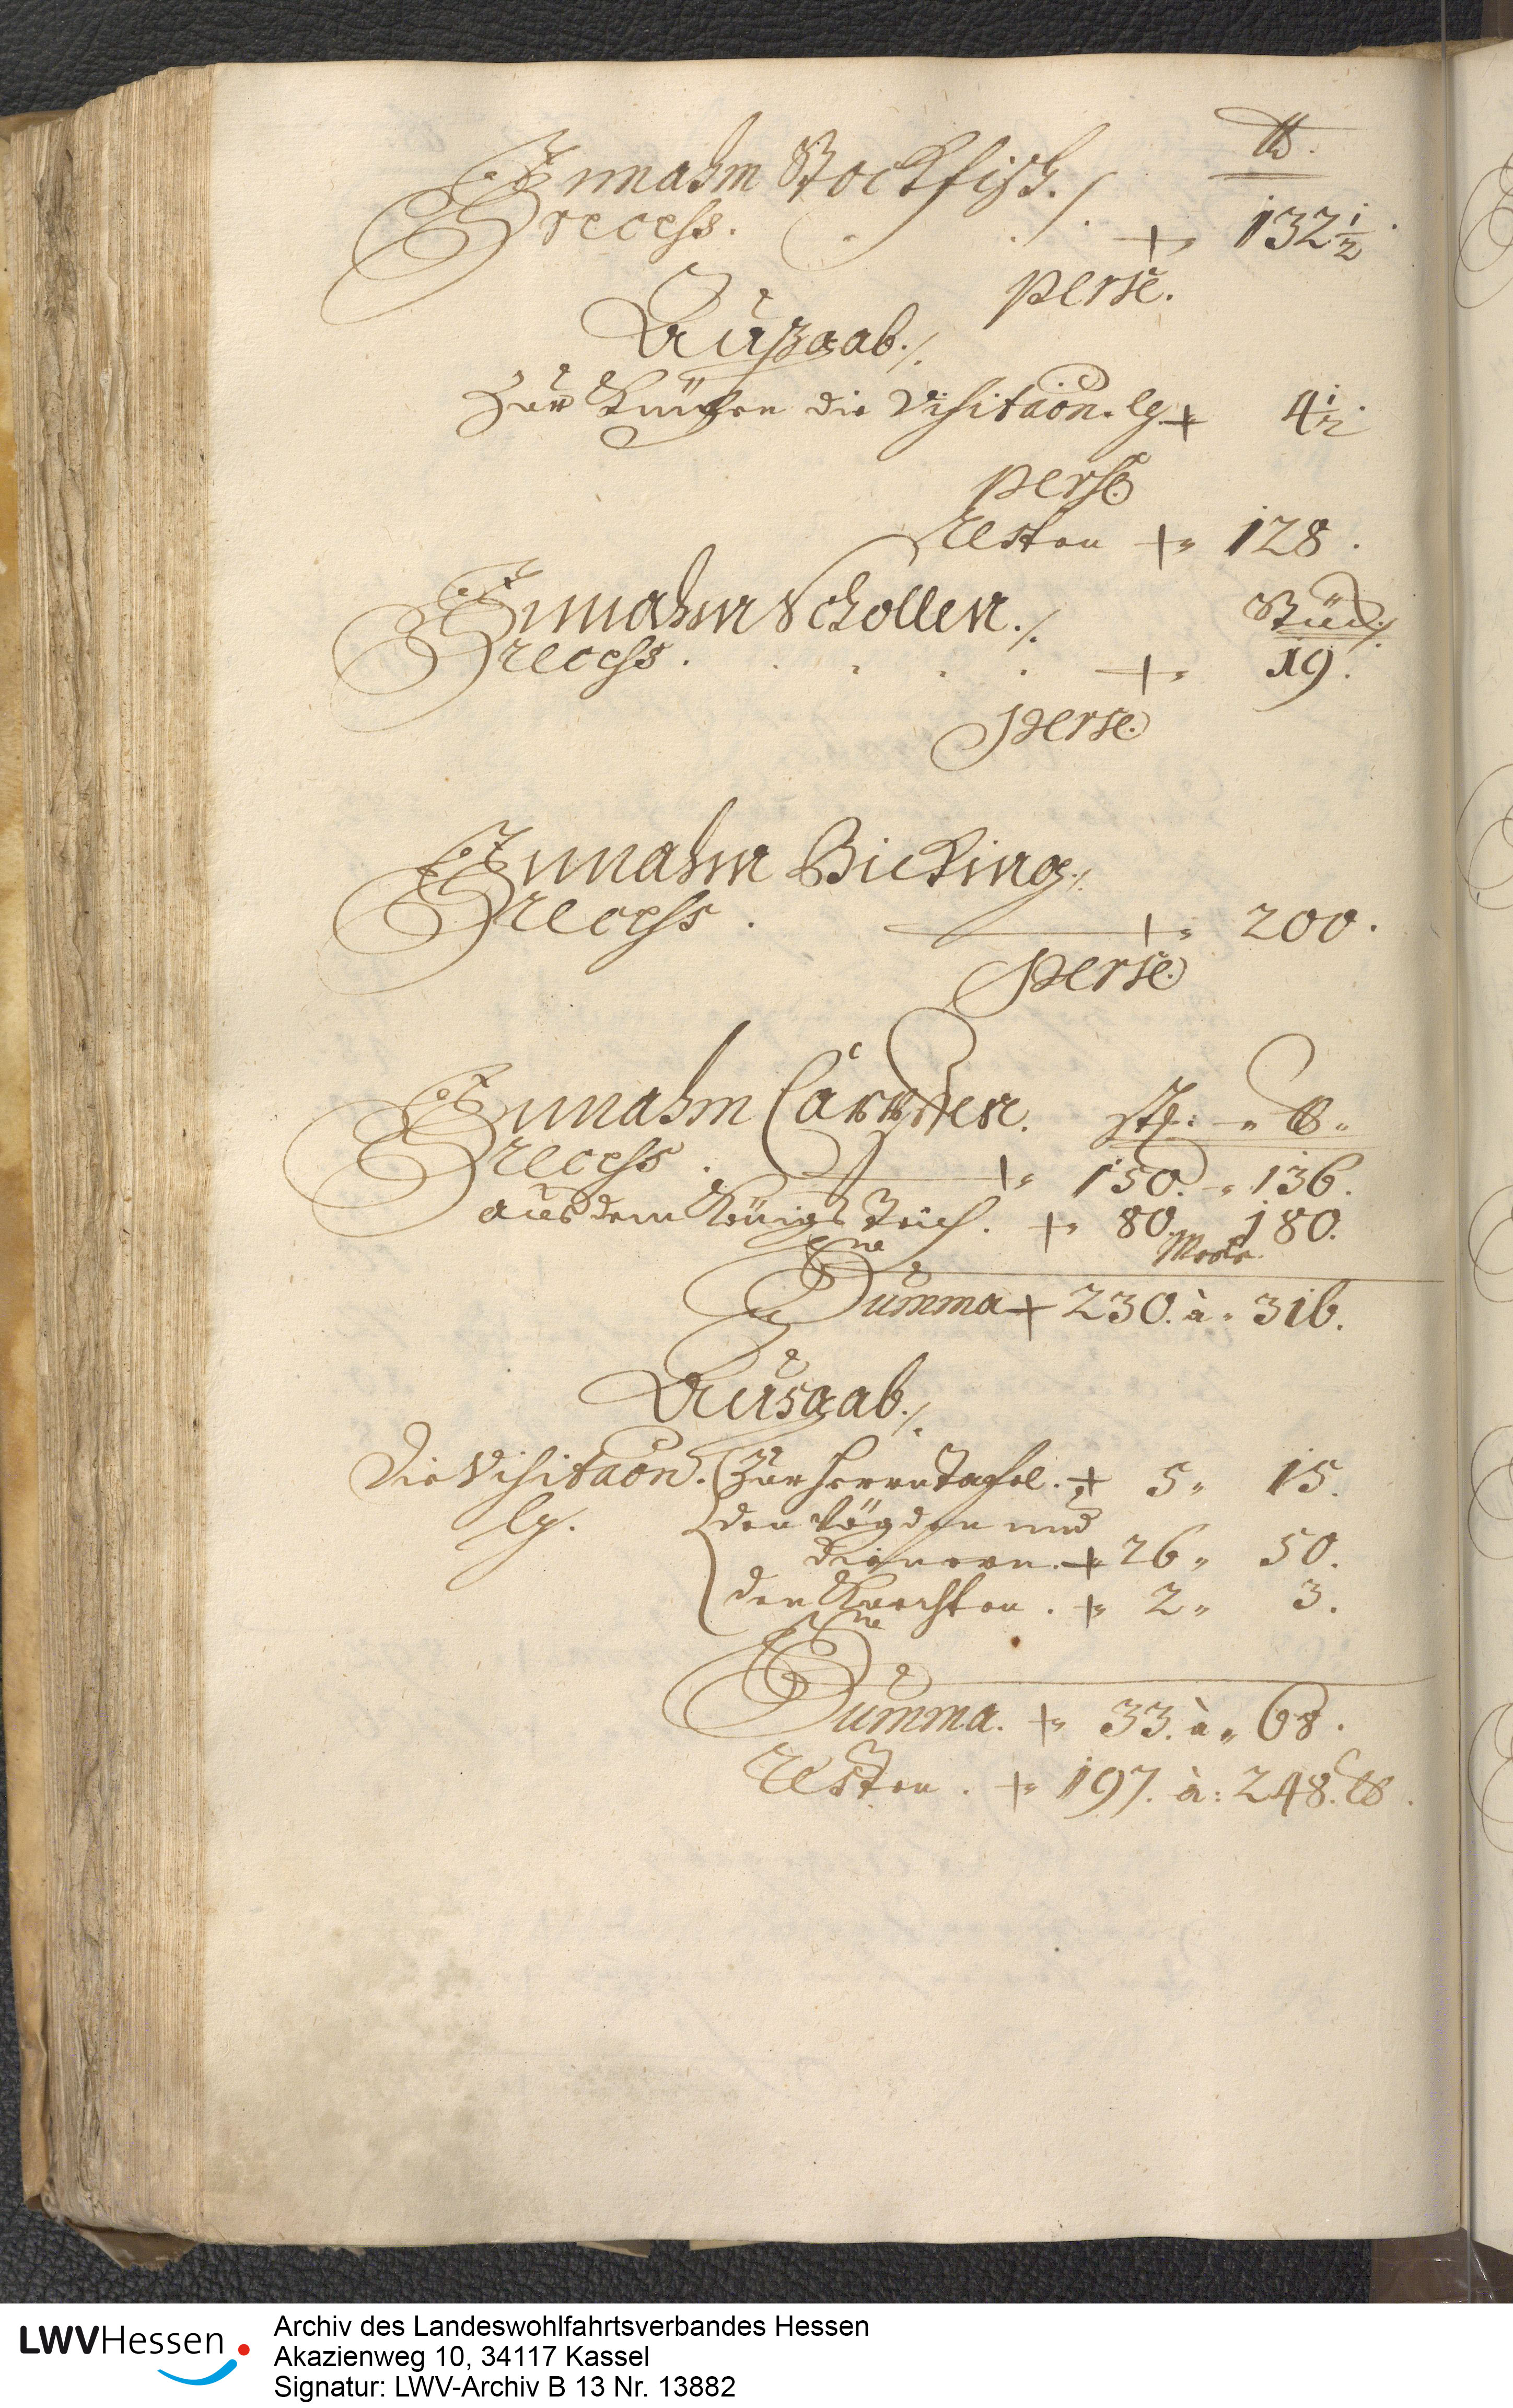 ℔.
Einnahm Stockfisch ./.
Recess. . . . + 132½.
perse.
Außgab ./.
Zur Küchen die Visitaon. lg + 4½.
perse
Resten + 128.
Einnahm Schollen ./. Stück
Recess. . . . + 19.
perse.
Einnahm Bicking ./.
Recess. + 200.
perse.
Einnahm Carpffen. stk: ℔.
Recess. + 150. 136.
aus dem Königs Teich. + 80. 180.
Summa + 230. à 316.
Ausgab ./.
Die Visitaon. Zur Herrn Tafel. + 5 15.
lg. den Vögden und
Dienern. + 26 50.
den Knechten. + 2 3.
Summa. + 33. à 68.
Resten. + 197. à: 248. ℔.
LWVHessen
Archiv des Landeswohlfahrtsverbandes Hessen
Akazienweg 10, 34117 Kassel
Signatur: LWV-Archiv B 13 Nr. 13882